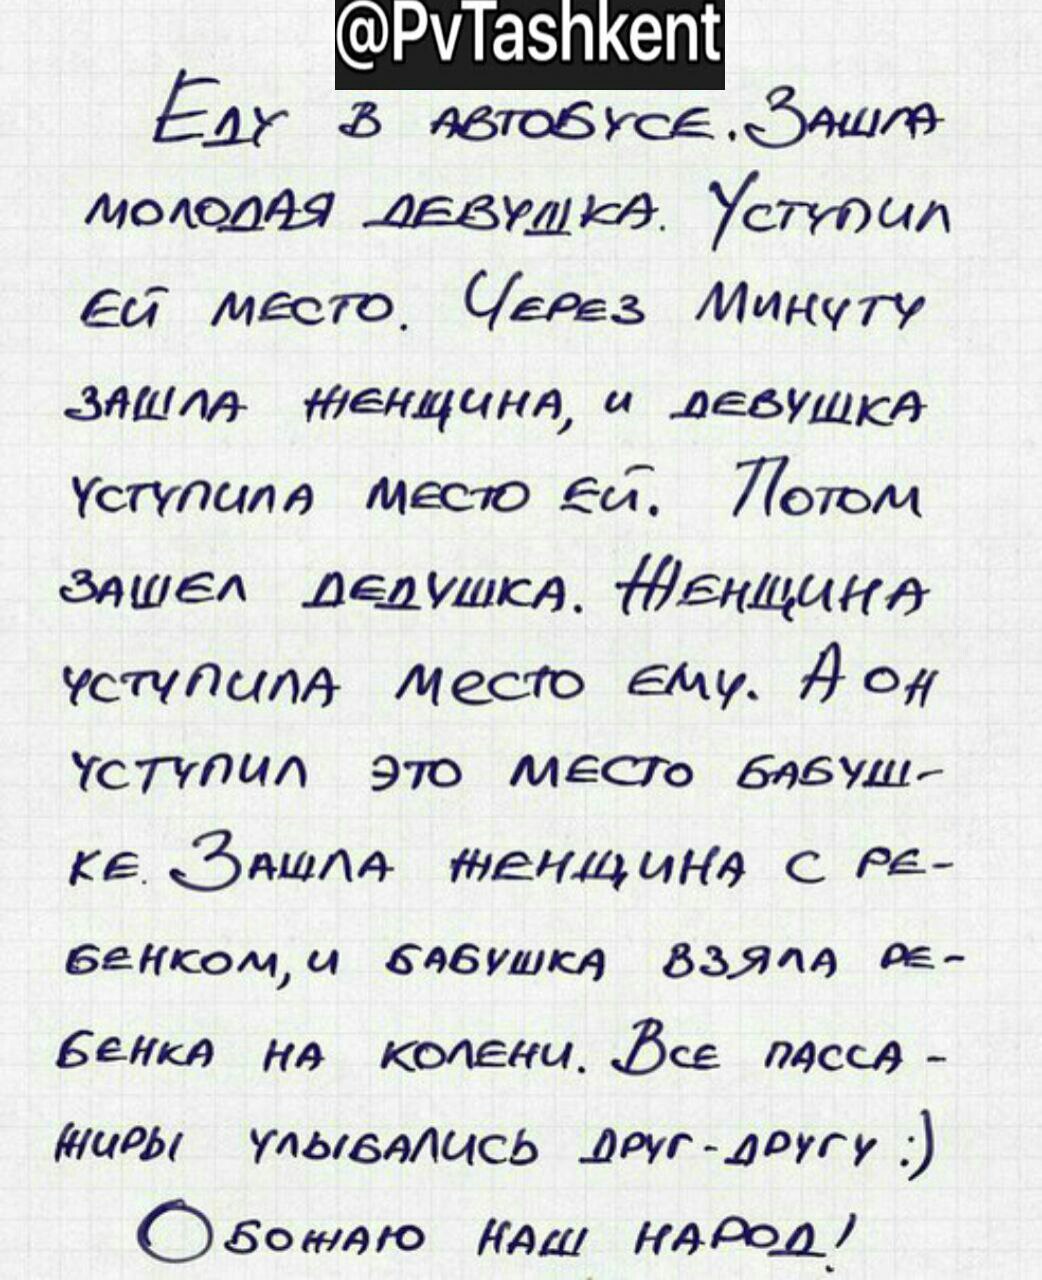 @PvTashkent
Еду в автобусе. Зашла
молодая девушка. Уступил
ей место. Через минуту
зашла женщина, и девушка
уступила место ей. Потом
зашел дедушка. Женщина
уступила место ему. А он
уступил это место бабуш-
ке. Зашла женщина с ре-
бенком, и бабушка взяла ре-
бенка на колени. Все пасса-
жиры улыбались друг-другу :)
Обожаю наш народ!